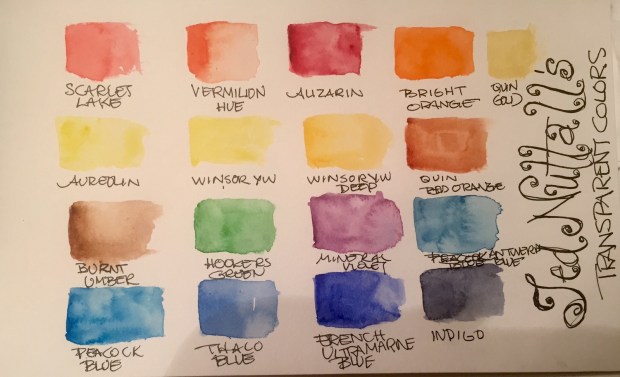 SCARLET
LAKE
VERMILION
HUE
ALIZARIN
BRIGHT
ORANGE
QUIN
GOLD
AUREOLIN
WINSOR YW
WINSOR YW
DEEP
QUIN
RED ORANGE
BURNT
UMBER
HOOKERS
GREEN
MINERAL
VIOLET
PEACOCK ANTWERP
BLUE BLUE
PEACOCK
BLUE
THALO
BLUE
FRENCH
ULTRAMARINE
BLUE
INDIGO
Ted Nuttall's
TRANSPARENT COLORS